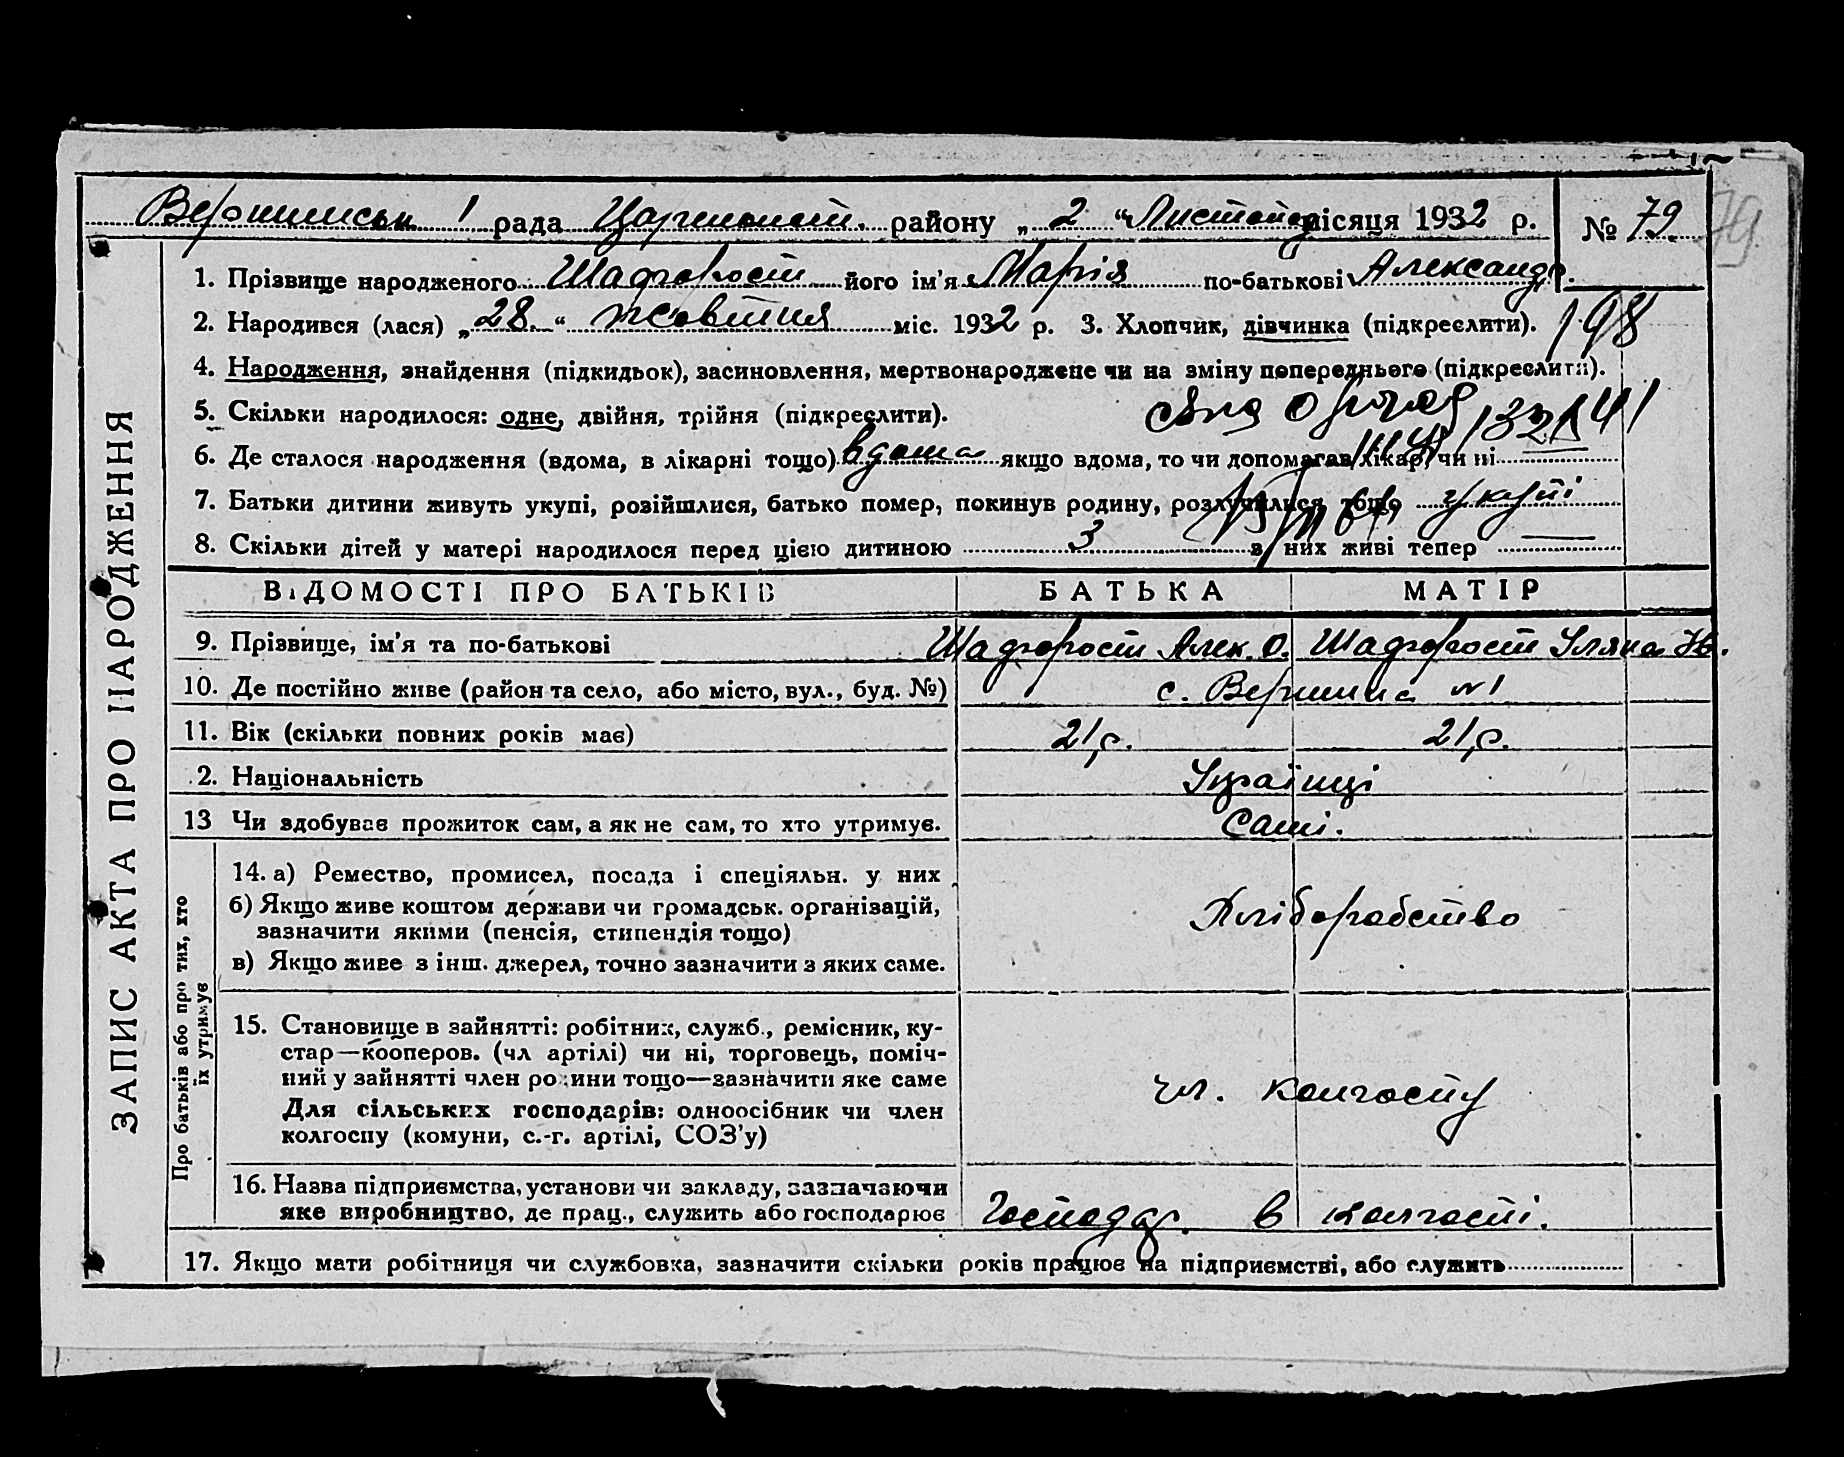 рада районy „ 2 “ Листопад місяця 1932 р. № 79
ЗАПИС АКТА ПРО НАРОДЖЕННЯ
1. Прізвище народженого його ім'я Марія по-батькові Александр.
2. Народився (лася) „ 28 “ жовтня міс. 1932 р. 3. Хлопчик, дівчинка (підкреслити).
198
4. Народження, знайдення (підкидьок), засиновлення, мертвонароджене чи на зміну попереднього (підкреслити).
5. Скільки народилося: одне, двійня, трійня (підкреслити).
6. Де сталося народження (вдома, в лікарні тощо) вдома якщо вдома, то чи допомагав лікар, чи ні
7. Батьки дитини живуть укупі, розійшлися, батько помер, покинув родину, розлучилися тощо укупі
8. Скільки дітей у матері народилося перед цією дитиною 3 з них живі тепер —
ВІДОМОСТІ ПРО БАТЬКІВ БАТЬКА МАТІР
9. Прізвище, ім'я та по-батькові Алек. О.
10. Де постійно живе (район та село, або місто, вул., буд. №) с. Вершина №1
11. Вік (скільки повних років має) 21 р. 21 р.
2. Національність Українці
13 Чи здобував прожиток сам, а як не сам, то хто утримує. Самі.
Про батьків або про тих, хто їх утримує
14. а) Ремество, промисел, посада і спеціяльн. у них
б) Якщо живе коштом держави чи громадськ. організацій,
зазначити якими (пенсія, стипендія тощо) Хліборобство
в) Якщо живе з інш. джерел, точно зазначити з яких саме.
15. Становище в зайнятті: робітник, служб., ремісник, ку-
стар—кооперов. (чл артілі) чи ні, торговець, поміч-
ний у зайнятті член родини тощо—зазначити яке саме чл. колгоспу
Для сільських господарів: одноосібник чи член
колгоспу (комуни, с.-г. артілі, СОЗ'у)
16. Назва підприємства, установи чи закладу, зазначаючи
яке виробництво, де прац., служить або господарює Господар. в колгоспі.
17. Якщо мати робітниця чи службовка, зазначити скільки років працює на підприємстві, або служить